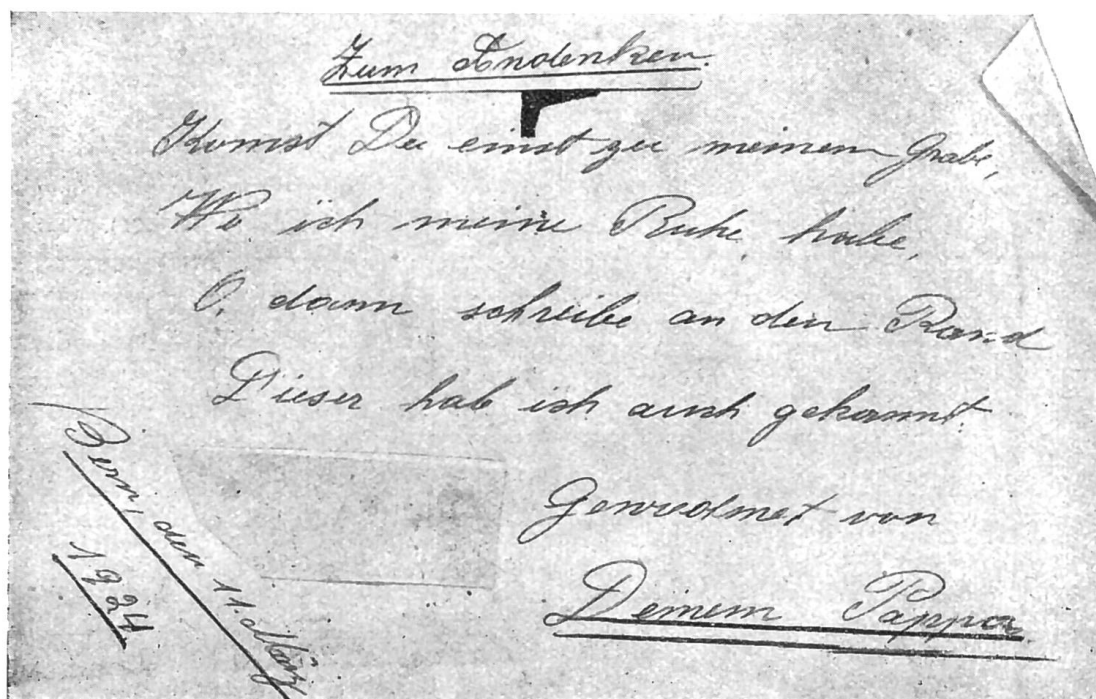 Zum Andenken.
Komst Du einst zu meinem Grabe,
Wo ich meine Ruhe habe,
O, dann schreibe an den Rand
Dieser hab ich auch gekannt.
Gewidmet von
Deinem Pappa.
Bern, den 11. März
1924